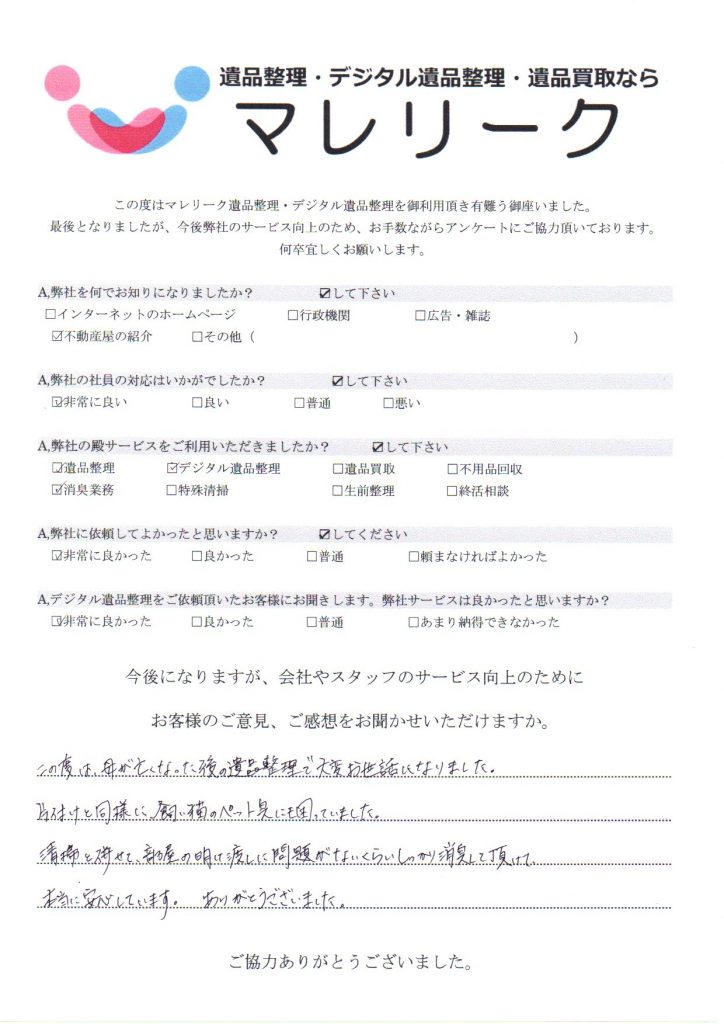 遺品整理・デジタル遺品整理・遺品買取なら
マレリーク
この度はマレリーク遺品整理・デジタル遺品整理を御利用頂き有難う御座いました。
最後となりましたが、今後弊社のサービス向上のため、お手数ながらアンケートにご協力頂いております。
何卒宜しくお願いします。
A,弊社を何でお知りになりましたか? ☑して下さい
□インターネットのホームページ □行政機関 □広告・雑誌
☑不動産屋の紹介 □その他( )
A,弊社の社員の対応はいかがでしたか? ☑して下さい
☑非常に良い □良い □普通 □悪い
A,弊社の殿サービスをご利用いただきましたか? ☑して下さい
☑遺品整理 ☑デジタル遺品整理 □遺品買取 □不用品回収
☑消臭業務 □特殊清掃 □生前整理 □終活相談
A,弊社に依頼してよかったと思いますか? ☑してください
☑非常に良かった □良かった □普通 □頼まなければよかった
A,デジタル遺品整理をご依頼頂いたお客様にお聞きします。弊社サービスは良かったと思いますか?
☑非常に良かった □良かった □普通 □あまり納得できなかった
今後になりますが、会社やスタッフのサービス向上のために
お客様のご意見、ご感想をお聞かせいただけますか。
この度は、母が亡くなった後の遺品整理で大変お世話になりました。
片付けと同様に、飼い猫のペット臭にも困っていました。
清掃と併せて、部屋の明け渡しに問題がないくらいしっかり消臭して頂けて、
本当に安心しています。 ありがとうございました。
ご協力ありがとうございました。